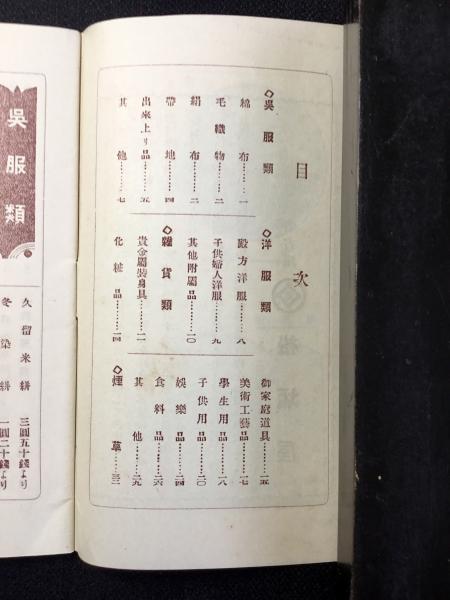 目次
◇吳服類
綿布……一
毛織物……二
絹布……二
帶地……四
出來上り品……五
其他……七
◇洋服類
殿方洋服……八
子供婦人洋服……九
其他附屬品……一〇
◇雜貨類
貴金屬裝身具……一一
化粧品……一四
御家庭道具……一五
美術工藝品……一七
學生用品……一八
子供用品……二〇
娛樂品……二四
食料品……二六
其他……二九
◇煙草……三二
吳服類
久留米絣 三圓五十錢より
冬染絣 一圓二十錢より